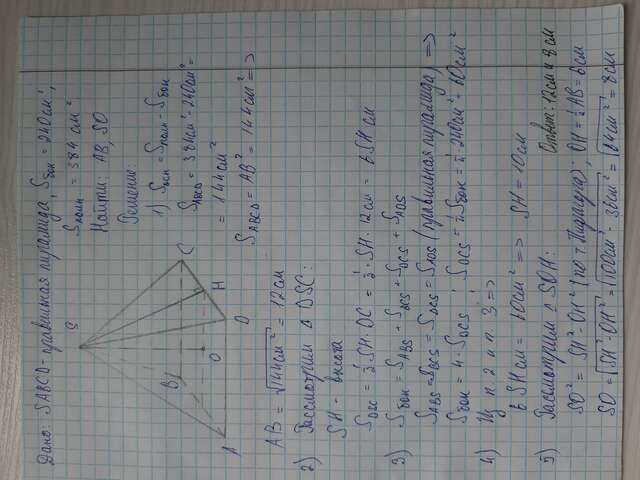 Дано: SABCD - правильная пирамида, Sбок = 240см²,
Sполн = 384 см²
Найти: AB, SO
Решение:
1) Sосн = Sполн - Sбок
SABCD = 384см² - 240см² =
= 144см²
SABCD = AB² = 144см² =>
S
B
C
H
O
A
D
AB = √144см² = 12см
2) Рассмотрим △ DSC:
SH - высота
SDSC = ½·SH·DC = ½·SH·12см = 6SH см
3) Sбок = SABS + SBCS + SDCS + SADS
SABS = SBCS = SDCS = SADS (правильная пирамида) =>
Sбок = 4·SDCS ; SDCS = ¼Sбок = ¼·240см² = 60см²
4) Из п 2 и п 3 =>
6 SH см = 60см² => SH = 10см
5) Рассмотрим △ SOH:
SO² = SH² - OH² (по т Пифагора); OH = ½AB = 6см
SO = √SH² - OH² = √100см² - 36см² = √64см² = 8см
Ответ: 12см и 8см